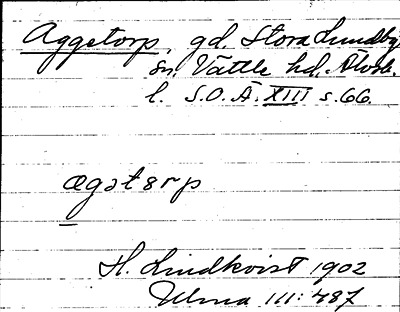 Aggetorp, gd. Stora Lundby
sn. Vättle hd, Älvsb.
l. S.O.Ä. XIII s.66.
ægstərp
H. Lindkvist 1902
Ulma 111:487